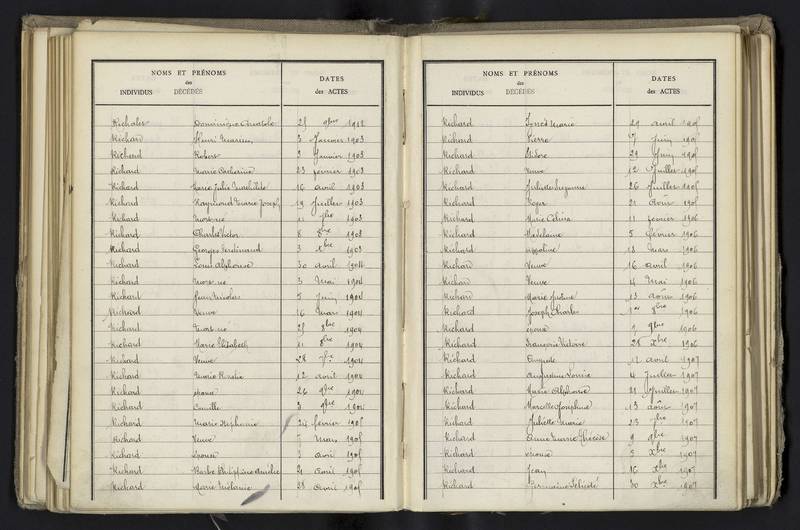 NOMS ET PRÉNOMS
des
INDIVIDUS DÉCÉDÉS
DATES
des ACTES
Dominique Anatole 25 9bre 1902
Richard Henri Marius 3 Janvier 1903
Richard Robert 3 Janvier 1903
Richard Marie Catherine 23 février 1903
Richard Marie Julie Mathilde 16 avril 1903
Richard Raymond Marie Joseph 19 Juillet 1903
Richard Mort-né 11 1903
Richard Charles Victor 8 8bre 1903
Richard Georges Ferdinand 3 Xbre 1903
Richard Louis Alphonse 30 avril 1904
Richard Mort-né 3 Mai 1904
Richard Jean Nicolas 5 Juin 1904
Richard Veuve 16 Mars 1904
Richard Mort-né 25 8bre 1904
Richard Marie Elisabeth 11 8bre 1904
Richard Veuve 28 7bre 1904
Richard Marie Rosalie 12 avril 1904
Richard épouse 26 9bre 1904
Richard Camille 3 9bre 1904
Richard Marie Stéphanie 24 février 1905
Richard Veuve 7 Mars 1905
Richard Epouse 3 avril 1905
Richard Barbe Philippine Amélie 21 avril 1905
Richard Marie Mélanie 28 avril 1905
NOMS ET PRÉNOMS
des
INDIVIDUS DÉCÉDÉS
DATES
des ACTES
Richard Marie 29 avril 1905
Richard Pierre Juin 1905
Richard Isidore 29 Juin 1905
Richard Veuve 12 Juillet 1905
Richard Suzanne 26 Juillet 1905
Richard Roger 21 Août 1905
Richard Marie Célina 11 février 1906
Richard Madeleine 5 février 1906
Richard Mars 1906
Richard Veuve 16 avril 1906
Richard Veuve 4 Mai 1906
Richard Marie Justine 13 Août 1906
Richard Joseph Charles 1er 8bre 1906
Richard épouse 9bre 1906
Richard François Victoire 28 Xbre 1906
Richard Auguste avril 1907
Richard Augustine Louise 4 Juillet 1907
Richard Marie Alphonse 21 Juillet 1907
Richard Marcelle Joséphine 13 août 1907
Richard Juliette Marie 23 7bre 1907
Richard Anne Marie Thérèse 9 9bre 1907
Richard épouse 5 Xbre 1907
Richard Jean 16 Xbre 1907
Richard Germaine Félicité 30 Xbre 1907